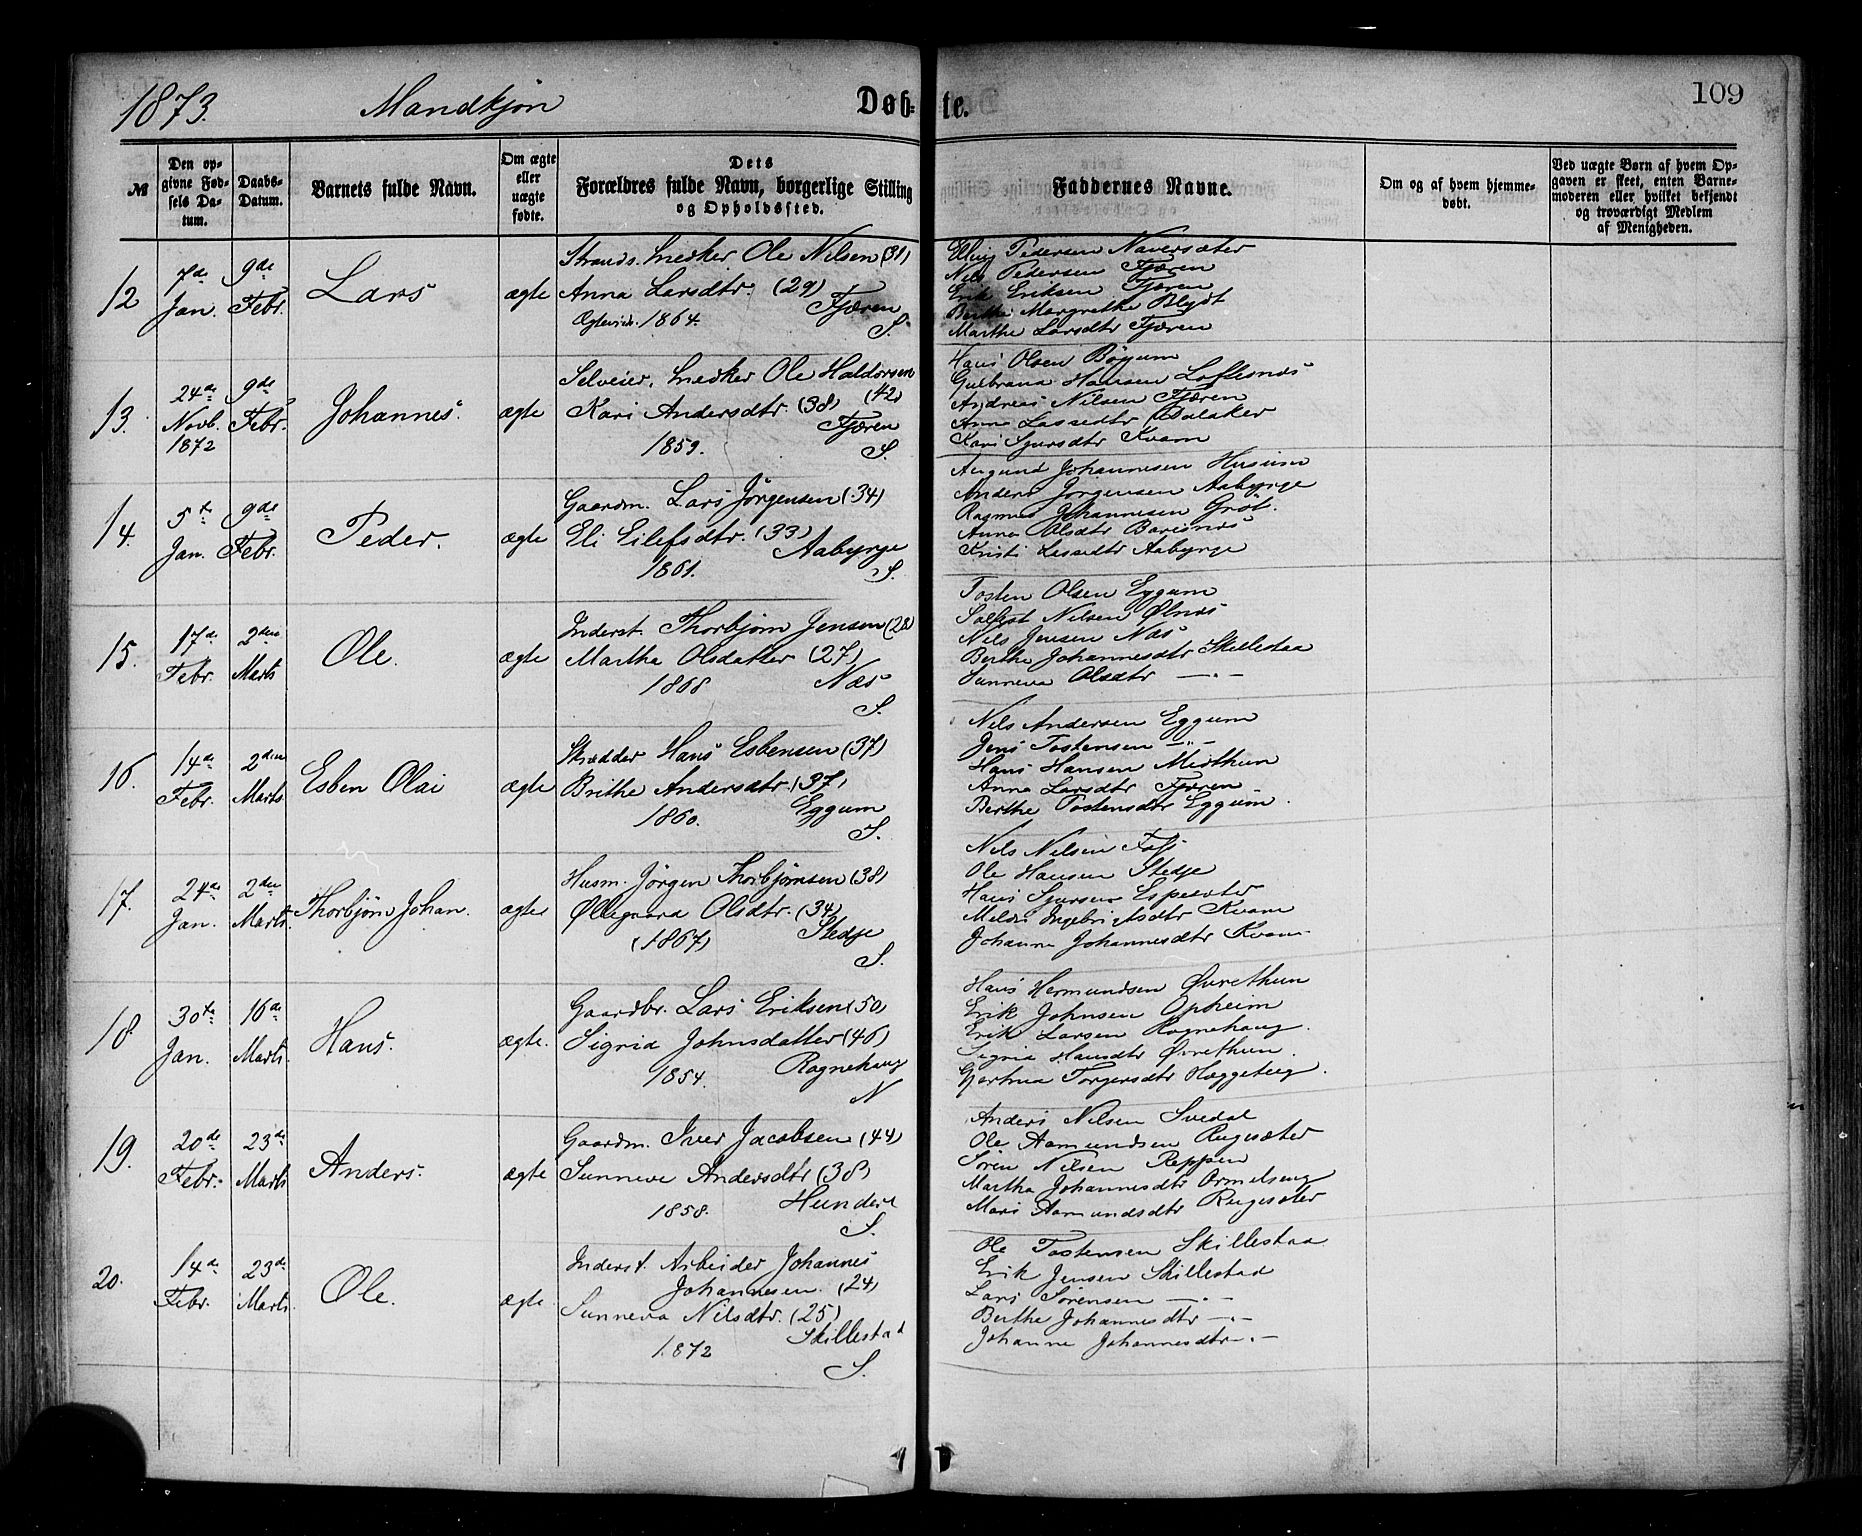 1873. Mandkjøn Døbte. 109
№
Den opgivne Fødsels Datum.
Daabs-Datum.
Barnets fulde Navn.
Om ægte eller uægte fødte.
Dets Forældres fulde Navn, borgerlige Stilling og Opholdssted.
Faddernes Navne.
Om og af hvem hjemmedøbt.
Ved uægte Børn af hvem Opgaven er skeet, enten Barnemoderen eller hvilket bekjendt og troværdigt Medlem af Menigheden.
12 7de Jan. 9de Febr. Lars ægte
Strands. Snedker Ole Nilsen (31)
Anna Larsdtr. (29) Fjæren
Ægtevied. 1864. S.
Elling Pedersen Naversæter
Nils Pedersen Fjæren
Erik Eriksen Fjæren
Berthe Margrethe Blydt
Marthe Larsdtr Fjæren
13. 24de Novb. 1872 9de Febr. Johannes. ægte
Selveier, Snedker Ole Haldorsen (42)
Kari Andersdtr. (38) Fjæren
1859. S.
Hans Olsen Bøyum
Gulbrand Hansen Loftesnæs
Andreas Nilsen Fjæren
Anna Lassedtr Dalaker
Kari Sjursdtr Kvam
14. 5te Jan. 9de Febr. Peder. ægte
Gaardm. Lars Jørgensen (34)
Eli Eilefsdtr. (33) Aabyrge
1861. S.
Augund Johannesen Husum
Anders Jørgensen Aabyrge
Rasmus Johannesen Grøt.
Anna Olsdtr Barsnæs
Kristi Lassedtr Aabyrge
15. 17de Febr. 2den Marts Ole. ægte
Inderst. Thorbjørn Jensen (28)
Martha Olsdatter (27)
1868 Næs
S.
Tosten Olsen Eggum
Sollest Nilsen Ølnæs
Nils Jensen Næs
Berthe Johannesdtr Skillestad
Sunneva Olsdtr —"—
16. 14de Febr. 2den Marts Esben Olai ægte
Skrædder Hans Esbensen (37)
Brithe Andersdtr. (37)
1860. Eggum
S.
Nils Andersen Eggum
Jens Tostensen —"—
Hans Hansen Midthun
Anna Larsdtr Fjæren
Berthe Tostensdtr Eggum.
17. 24de Jan. 2den Marts. Thorbjørn Johan. ægte
Husm. Jørgen Thorbjørnsen (38)
Øllegaard Olsdtr. (34)
(1867) Stedje
S.
Nils Nilsen Foss
Ole Hansen Stedje
Hans Sjursen Espesæter
Meldri Ingebrigtsdtr Kvam
Johanne Johannesdtr Kvam
18. 30te Jan. 16de Marts. Hans. ægte.
Gaardbr. Lars Eriksen (50)
Sigrid Johnsdatter (46)
1854. Ragnehaug
N
Hans Hermundsen Øvrethun
Erik Johnsen Opheim
Erik Larsen Ragnehaug.
Sigrid Hansdtr Øvrethun.
Gjertrud Torgersdtr Hæggeteig.
19. 20de Febr. 23de Marts Anders. ægte
Gaardm. Iver Jacobsen (44)
Sunneve Andersdtr (38)
1858. Hundere
S.
Anders Nilsen Svedal
Ole Aamundsen Rugesæter
Søren Nilsen Reppen
Martha Johannesdtr Ormelseng
Mari Aamundsdtr Rugesæter
20. 14de Febr. 23de Marts. Ole. ægte.
Inderst. Arbeider Johannes
Johannesen. (24)
Sunneva Nilsdtr. (25)
1872 Skillestad
S.
Ole Tostensen Skillestad
Erik Jensen Skillestad
Lars Sørensen —"—
Berthe Johannesdtr —"—
Johanne Johannesdtr —"—